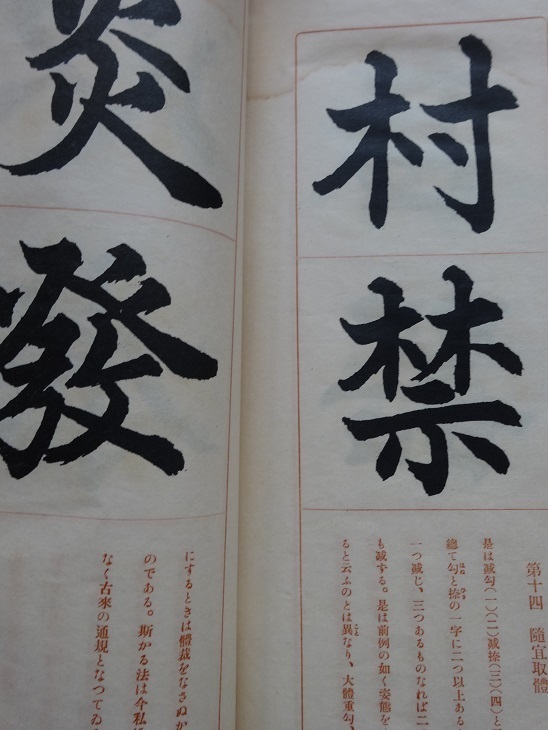 村
禁
第十四 隨宜取體
是は減勾(一)(二)減捺(三)(四)と
總て勾と捺の一字に二つ以上ある
一つ減じ、三つあるものなれば二
も減する。是は前例の如く姿態を
ると云ふのとは異なり、大體重勾、
炎
發
にするときは體裁をなさぬか
のである。斯かる法は今私
なく古來の通規となつてゐ